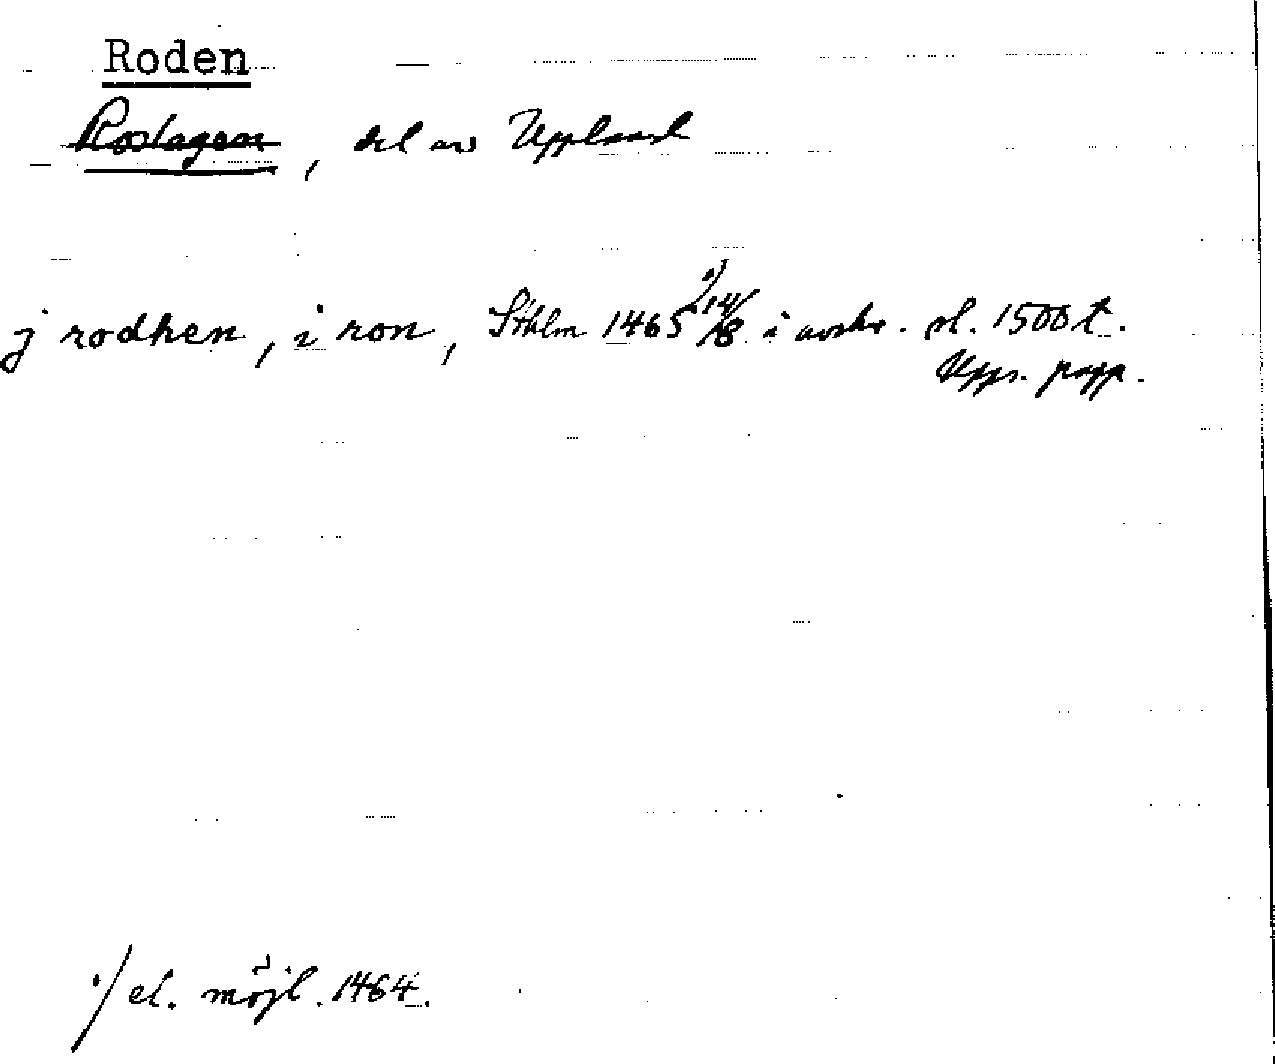 Roden
Roslagen, del av Uppland
j rodhen, i ron, Sthlm 1465 1) 14/8 i avskr. sl. 1500 t.
Upps. papp.
1/ el. möjl. 1464.